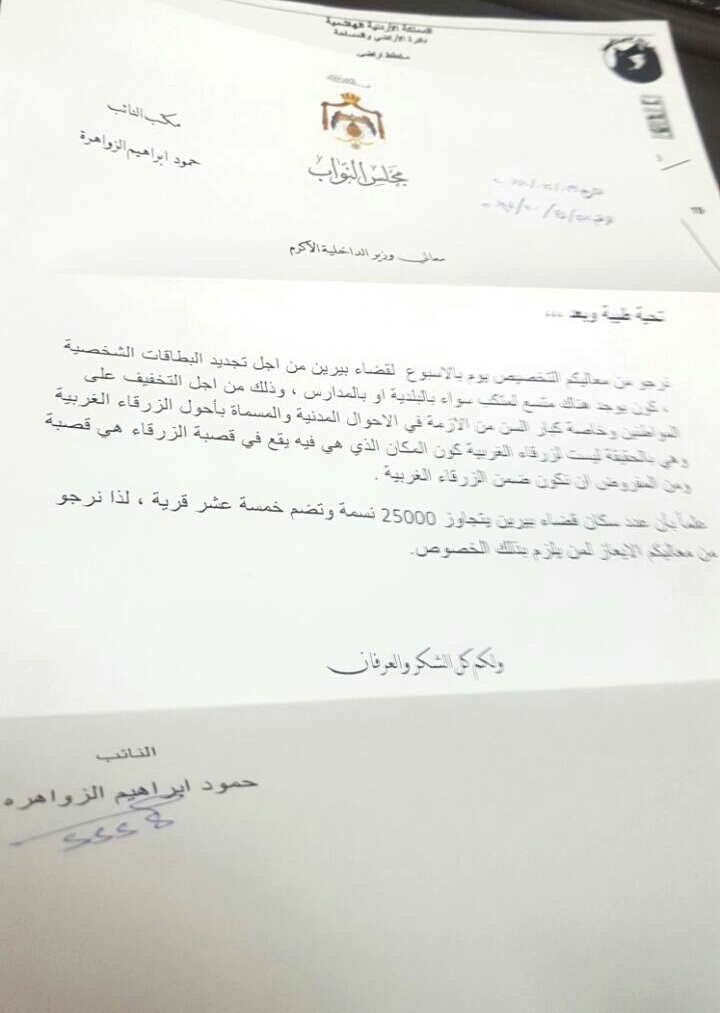 المملكة الأردنية الهاشمية
دائرة الأراضي والمساحة
مخطط اراضي
مكتب النائب
حمود ابراهيم الزواهرة
مجلس النواب
معالي وزير الداخلية الأكرم
تحية طيبة وبعد ...
نرجو من معاليكم التخصيص يوم بالاسبوع لقضاء بيرين من اجل تجديد البطاقات الشخصية
، كون يوجد هناك متسع لمتكب سواء بالبلدية او بالمدارس ، وذلك من اجل التخفيف على
المواطنين وخاصة كبار السن من الازمة في الاحوال المدنية والمسماة بأحول الزرقاء الغربية
وهي بالحقيقة ليست لزرقاء الغربية كون المكان الذي هي فيه يقع في قصبة الزرقاء هي قصبة
ومن المفروض ان تكون ضمن الزرقاء الغربية .
علماً بأن عدد سكان قضاء بيرين يتجاوز 25000 نسمة وتضم خمسة عشر قرية ، لذا نرجو
من معاليكم الايعاز لمن يلزم بذلك الخصوص.
ولكم كل الشكر والعرفان
النائب
حمود ابراهيم الزواهره